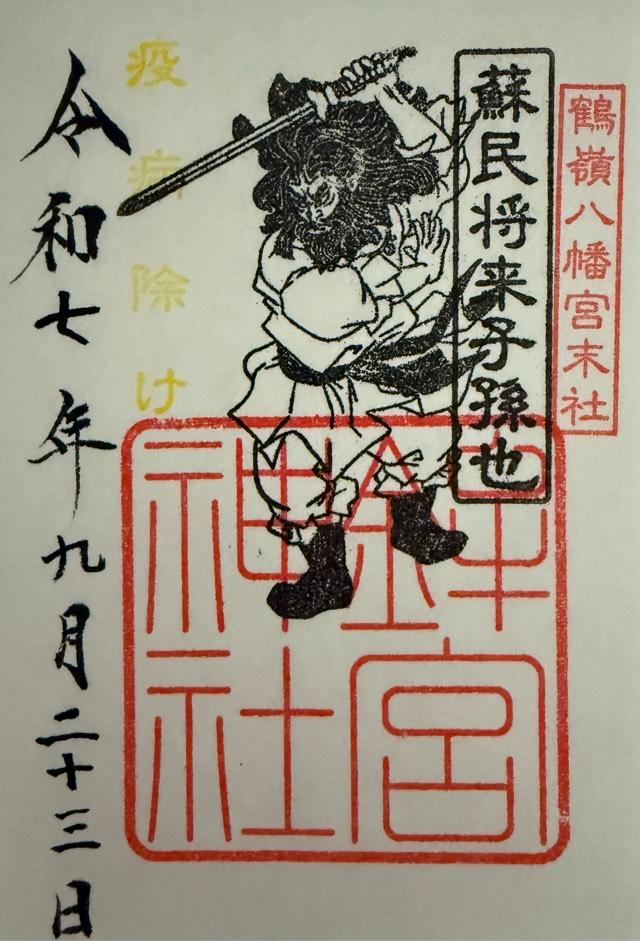 鶴嶺八幡宮末社
蘇民将来子孫也
疫病除け
鉾宮
神社
令和七年九月二十三日